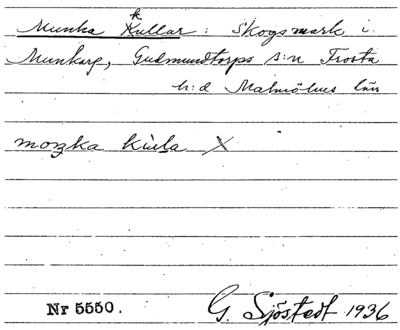 k
Munka Kullar: Skogsmark i
Munkarp, Gudmundtorps s:n Frosta
h:d Malmöhus län
moŋka kùla X
Nr 5550.
G. Sjöstedt 1936